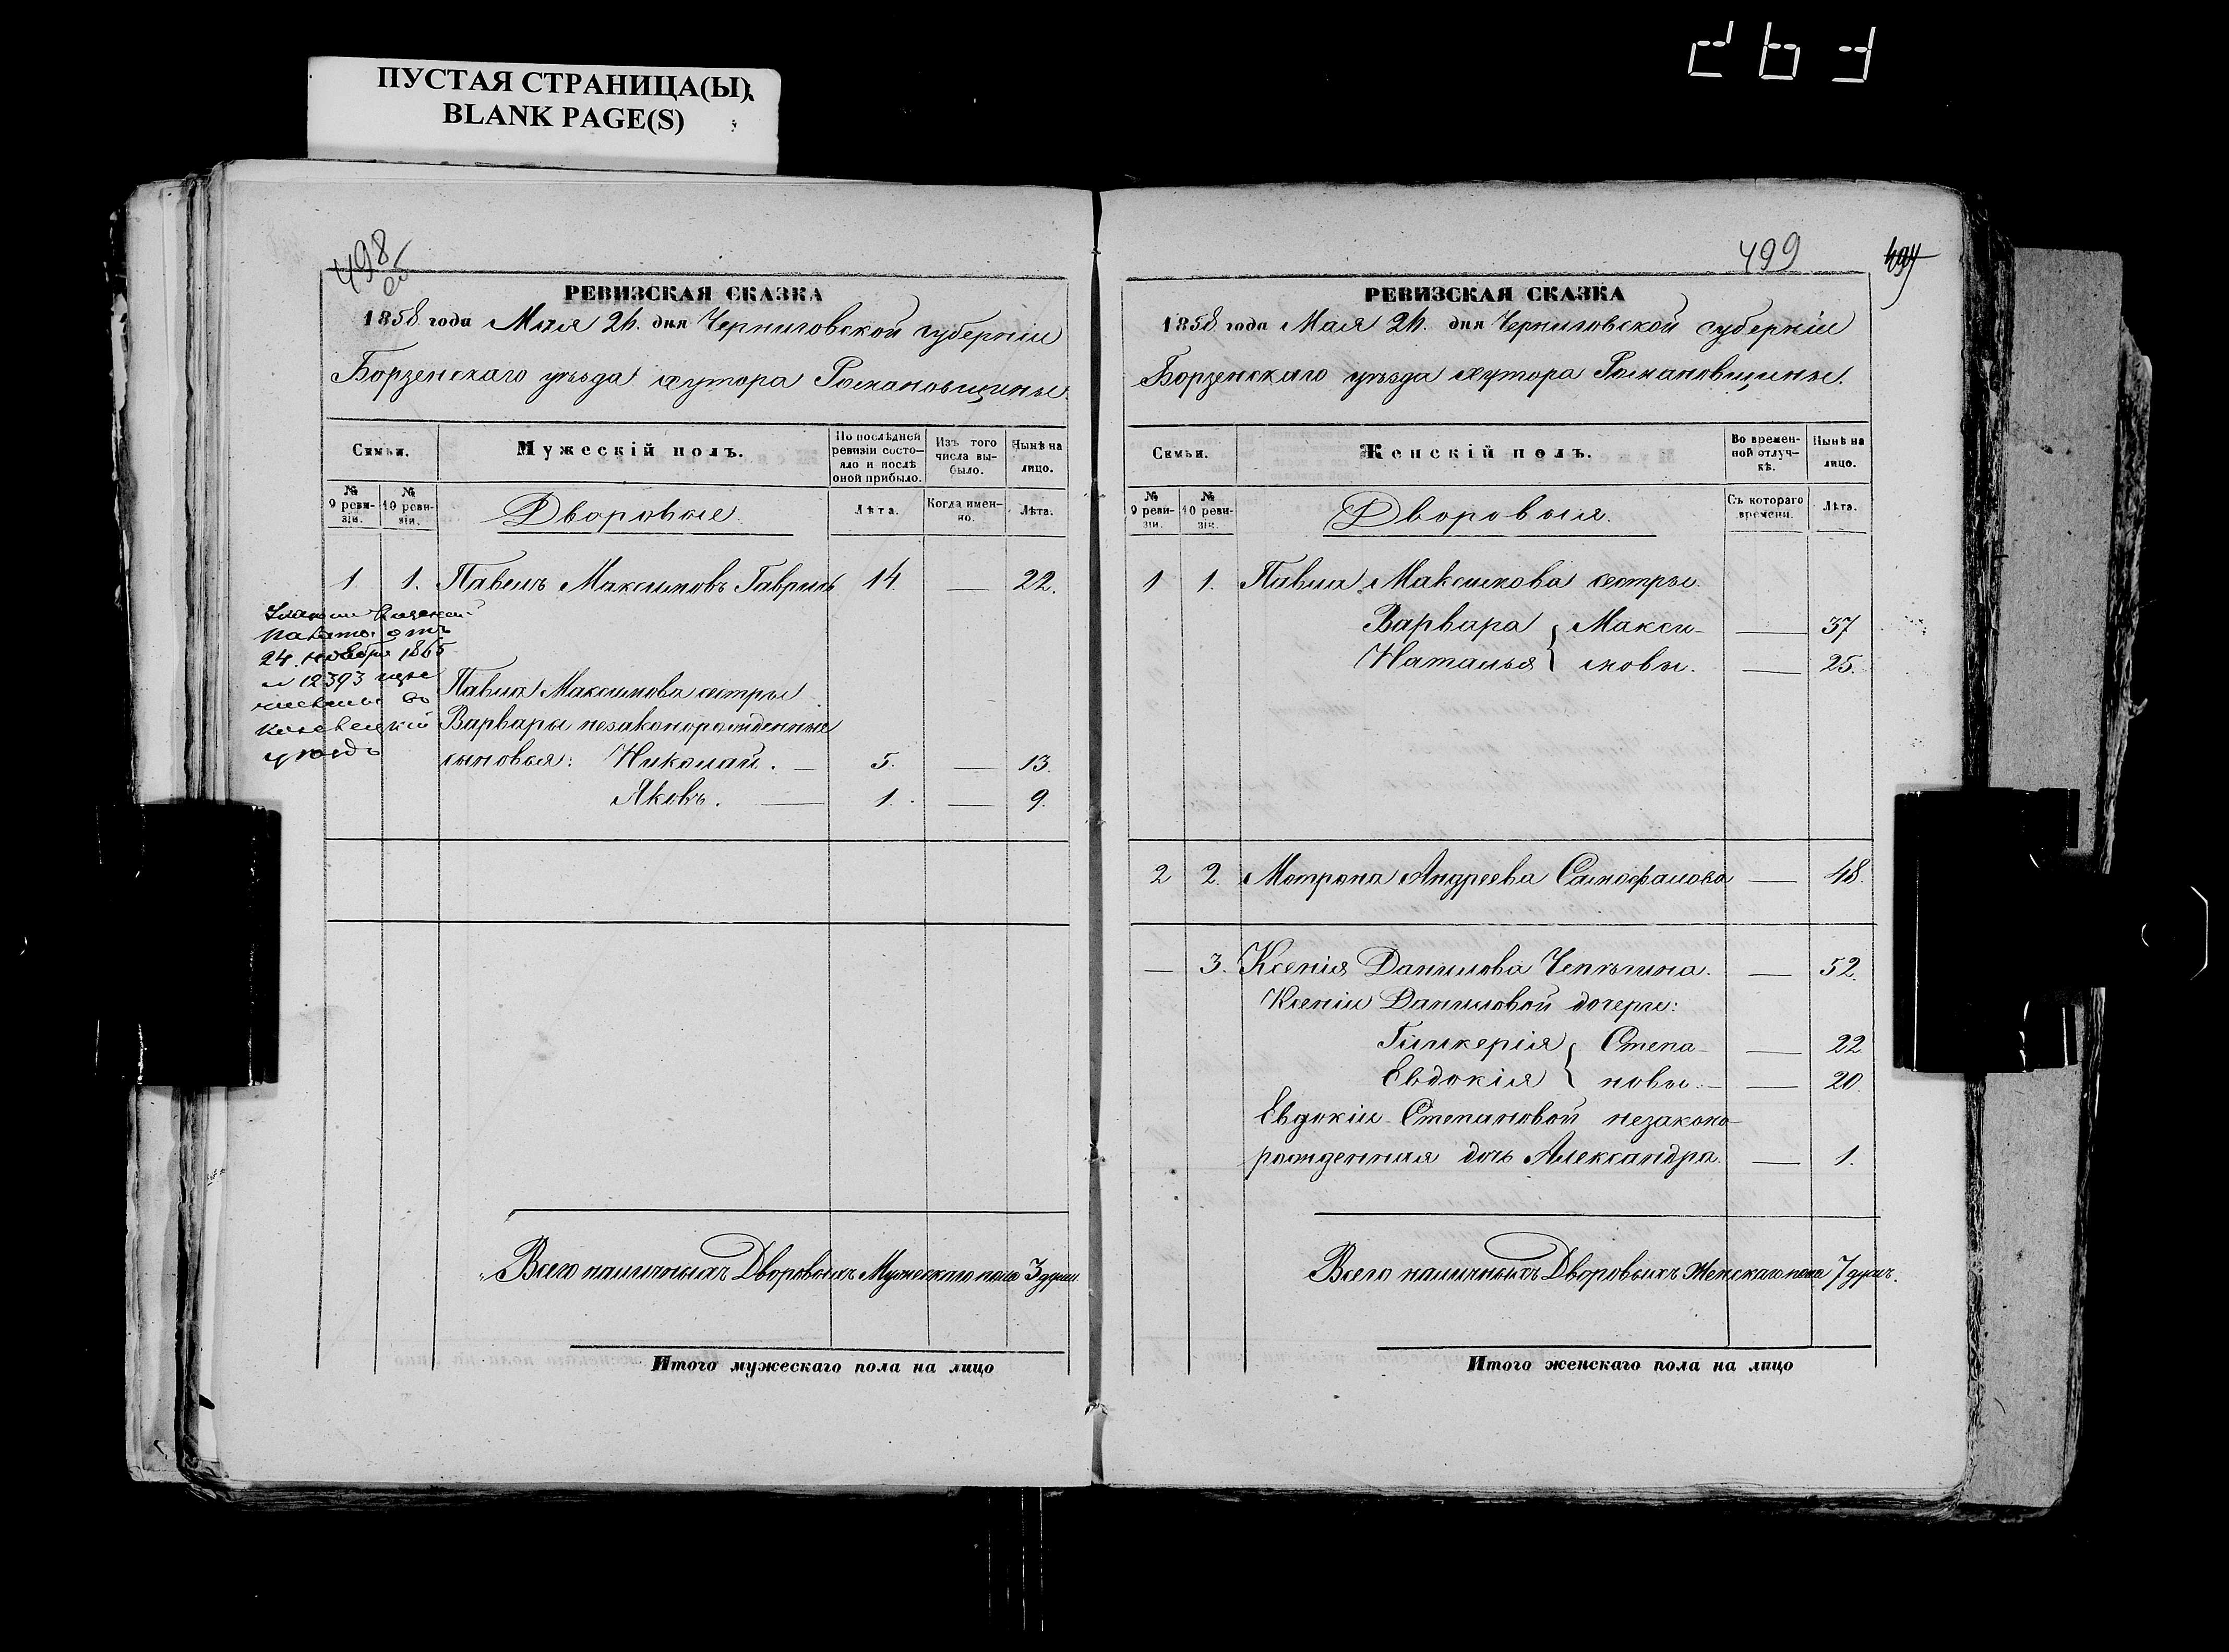 ПУСТАЯ СТРАНИЦА(Ы)
BLANK PAGE(S)
498
об
РЕВИЗСКАЯ СКАЗКА
1858 года Мая 26. дня Черниговской губерніи
Борзенскаго уѣзда хутора Романовщины.
Семьи.
Мужескій полъ.
По послѣдней ревизіи состояло и послѣ оной прибыло.
Изъ того числа выбыло.
Нынѣ на лицо.
№ 9 ревизіи.
№ 10 ревизіи.
Дворовые.
Лѣта.
Когда именно.
Лѣта.
1. 1. Павелъ Максимовъ Гавриль 14. — 22.
Казенной
палаты отъ
24. ноября 1865
12393
въ
уѣздъ
Павла Максимова сестры
Варвары незаконорожденные
сыновья: Николай. — 5. — 13.
Яковъ. — 1. — 9.
Всего наличныхъ Дворовыхъ Мужескаго пола 3 души.
Итого мужескаго пола на лицо
499
РЕВИЗСКАЯ СКАЗКА
1858 года Мая 26. дня Черниговской губерніи
Борзенскаго уѣзда хутора Романовщины.
Семьи.
Женскій полъ.
Во временной отлучкѣ.
Нынѣ на лицо.
№ 9 ревизіи.
№ 10 ревизіи.
Дворовыя.
Съ котораго времени.
Лѣта.
1 1. Павла Максимова сестры.
Варвара { Макси- — 37
Наталья { мовы. — 25.
2 2. Мотрона Андреева Самофалова — 48.
— 3. Ксенія Данилова Чепѣгина. — 52.
Ксеніи Даниловой дочери:
Гликерія { Степа- — 22
Евдокія { новы. — 20.
Евдокіи Степановой незаконо-
рожденная дочь Александра. — 1.
Всего наличныхъ Дворовыхъ Женскаго пола 7 душъ.
Итого женскаго пола на лицо